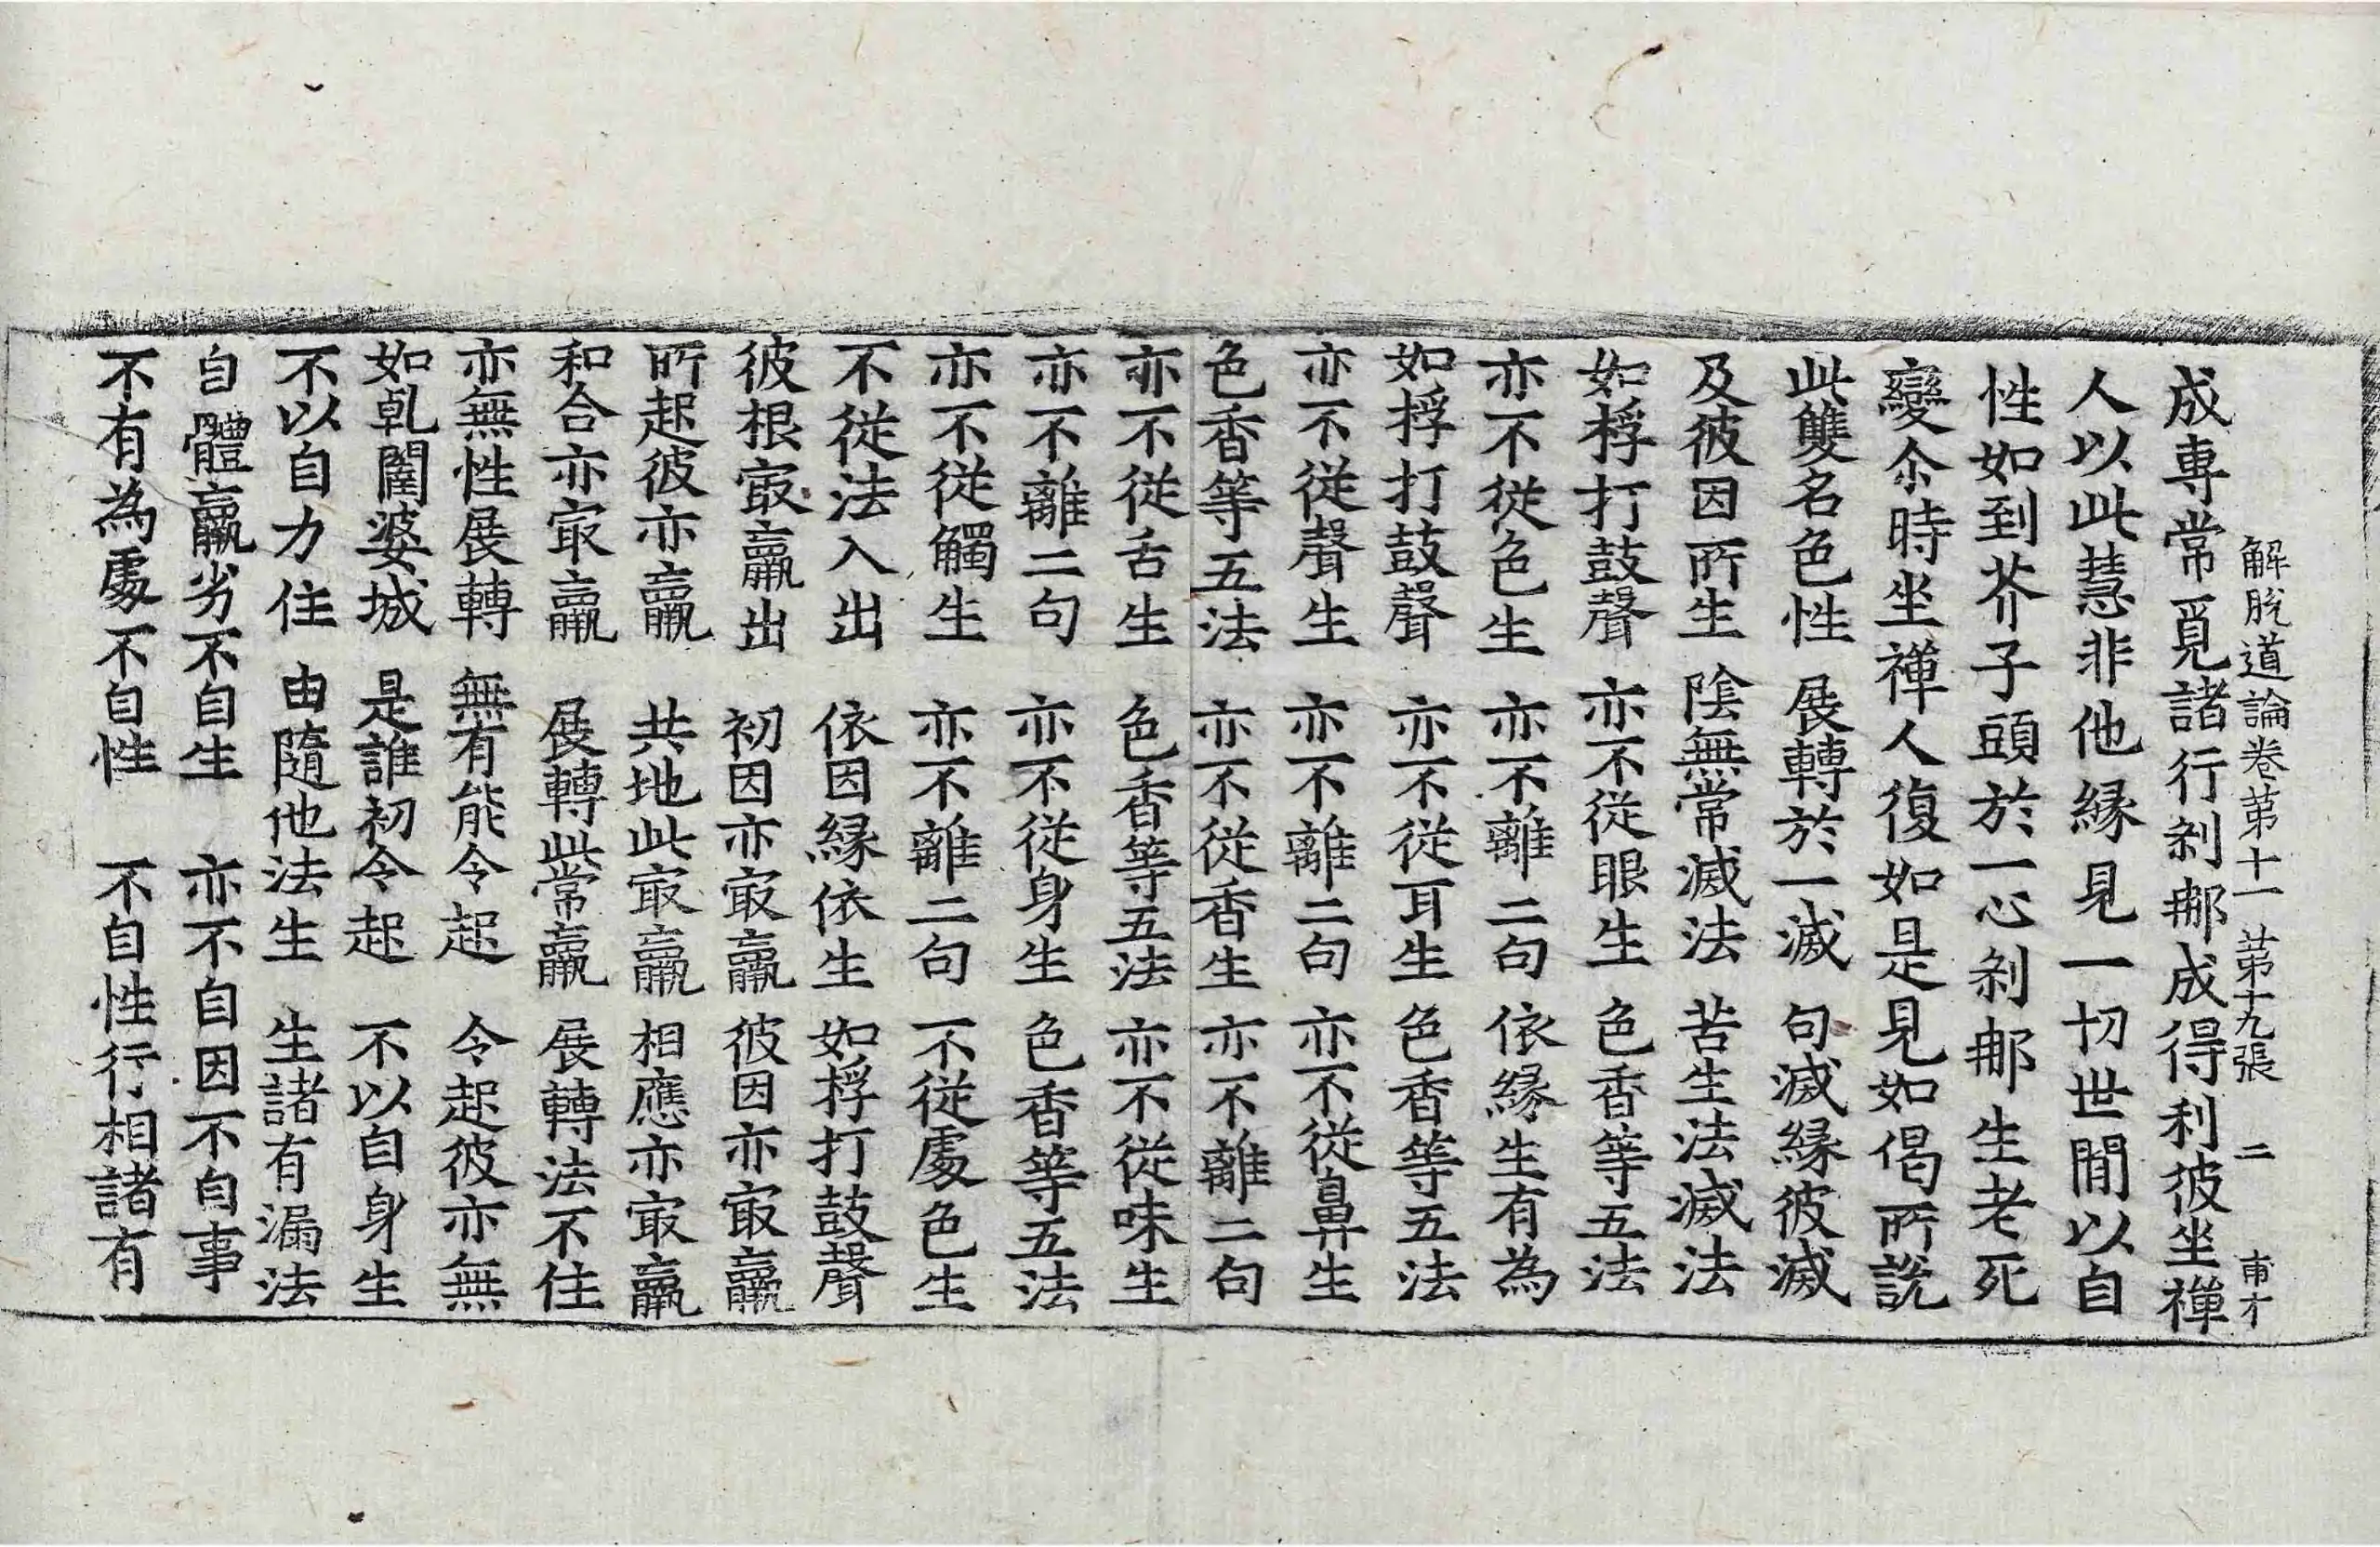 解脫道論卷第十一 第十九張 二 甫才
成專常覓諸行剎那成得利彼坐禪
人以此慧非他緣見一切世間以自
性如到芥子頭於一心剎那生老死
變尒時坐禪人復如是見如偈所說
此雙名色性 展轉於一滅 句滅緣彼滅
及彼因所生 陰無常滅法 苦生法滅法
如桴打鼓聲 亦不從眼生 色香等五法
亦不從色生 亦不離二句 依緣生有為
如桴打鼓聲 亦不從耳生 色香等五法
亦不從聲生 亦不離二句 亦不從鼻生
色香等五法 亦不從香生 亦不離二句
亦不從舌生 色香等五法 亦不從味生
亦不離二句 亦不從身生 色香等五法
亦不從觸生 亦不離二句 不從處色生
不從法入出 依因緣依生 如桴打鼓聲
彼根冣羸出 初因亦冣羸 彼因亦冣羸
所起彼亦羸 共地此冣羸 相應亦冣羸
和合亦冣羸 展轉此常羸 展轉法不住
亦無性展轉 無有能令起 令起彼亦無
如乹闥婆城 是誰初令起 不以自身生
不以自力住 由隨他法生 生諸有漏法
自體羸劣不自生 亦不自因不自事
不有為處不自性 不自性行相諸有